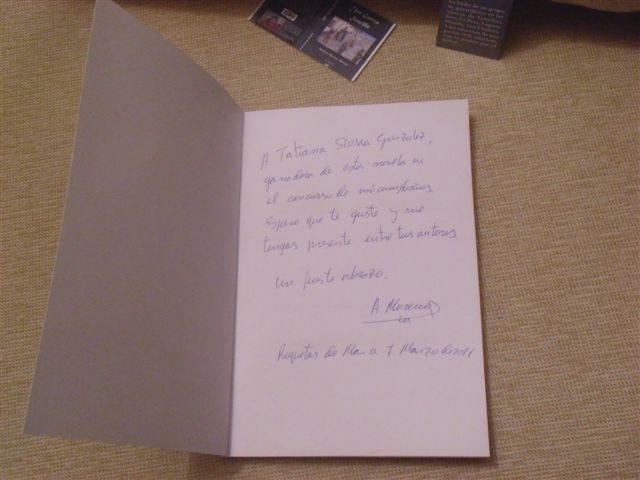 A Tatiana Sierra Gonzalez,
ganadora de esta novela en
el concurso de mi cumpleaños
Espero que te guste y me
tengas presente entre tus autores
Un fuerte abrazo.
A. Moreno
Roquetas de Mar a 7 Marzo de 2011